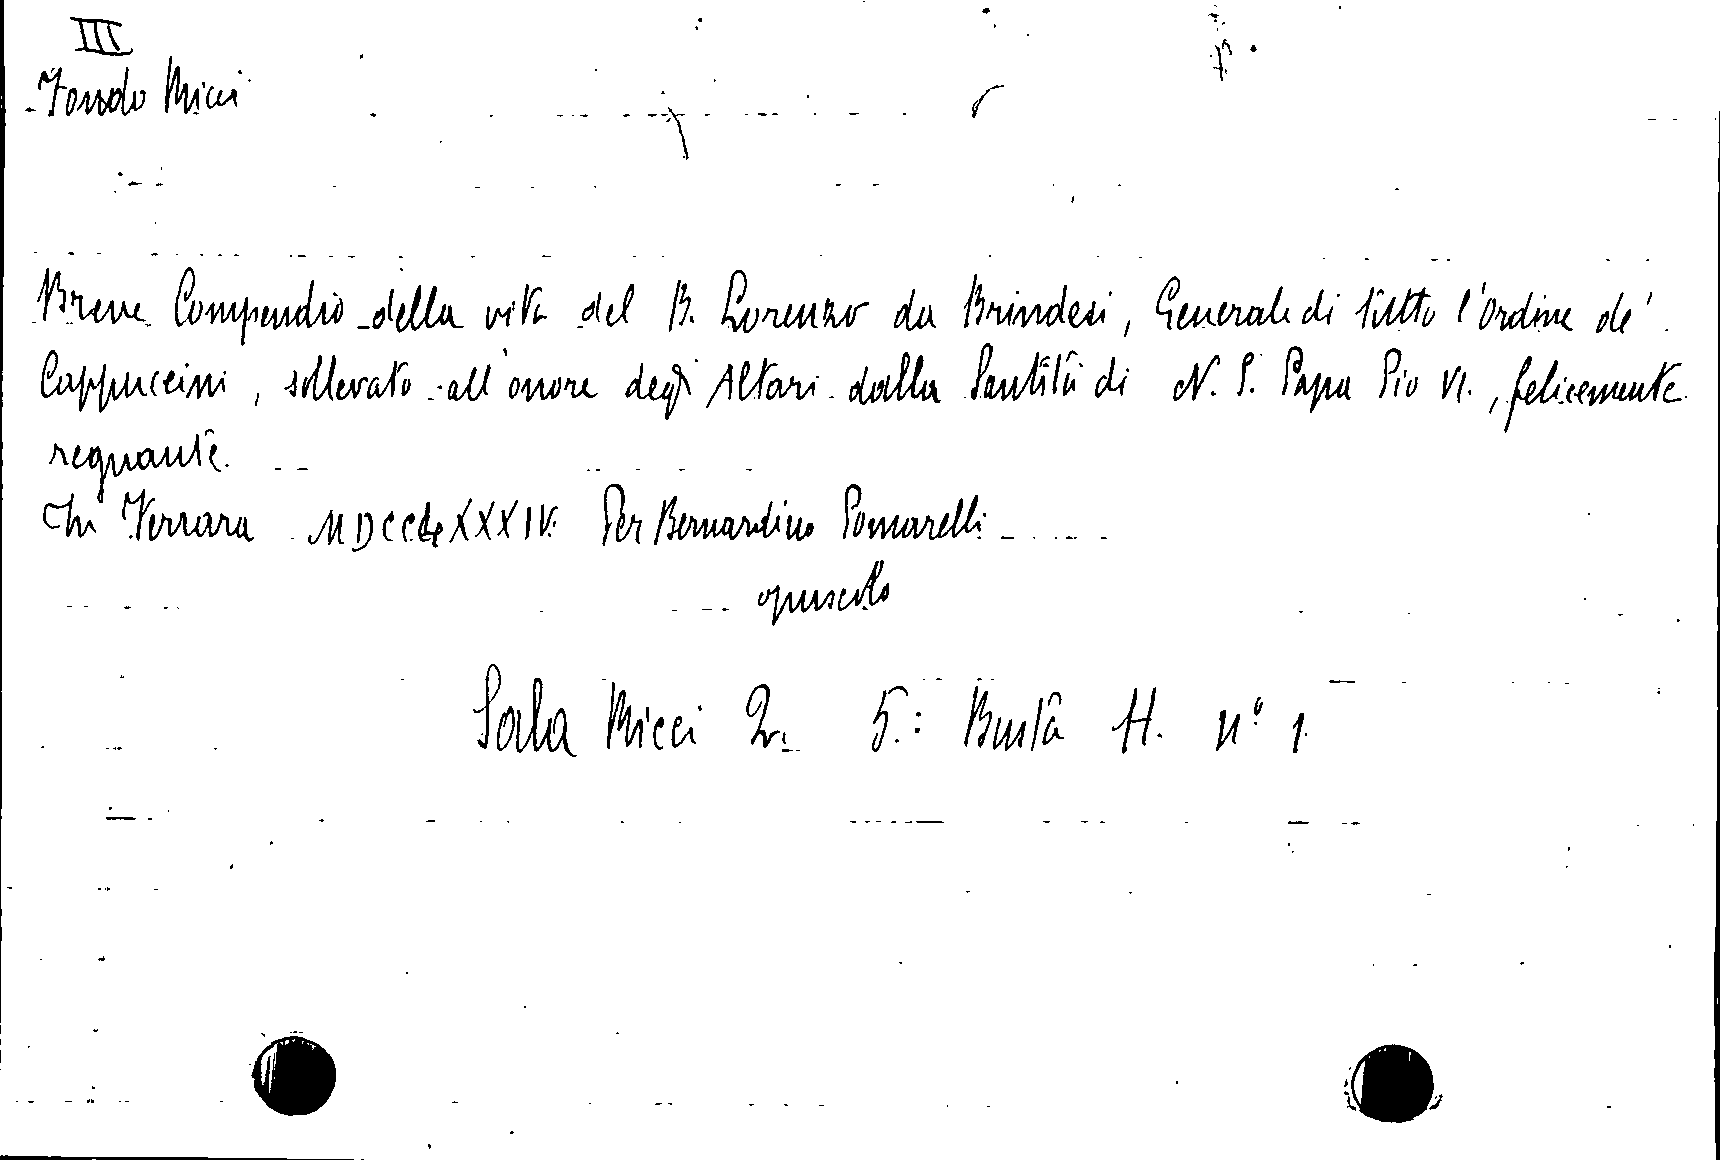 III
Fondo Micci
Breve Compendio della vita del B. Lorenzo da Brindesi, Generale di tutto l'ordine de'
Cappuccini, sollevato all'onore degli Altari dalla Santità di N. S. Papa Pio VI., felicemente
regnante.
In Ferrara MDCCLXXXIV. Per Bernardino Pomarelli
opuscolo
Sala Micci 2. 5.: Busta H. n° 1.